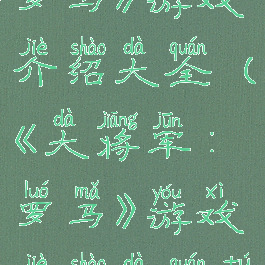 罗马》游戏
jiè shào dà quán
介绍大全(
dà jiāng jūn
《大将军:
luó mǎ yóu xì
罗马》游戏
jiè shào dà quán